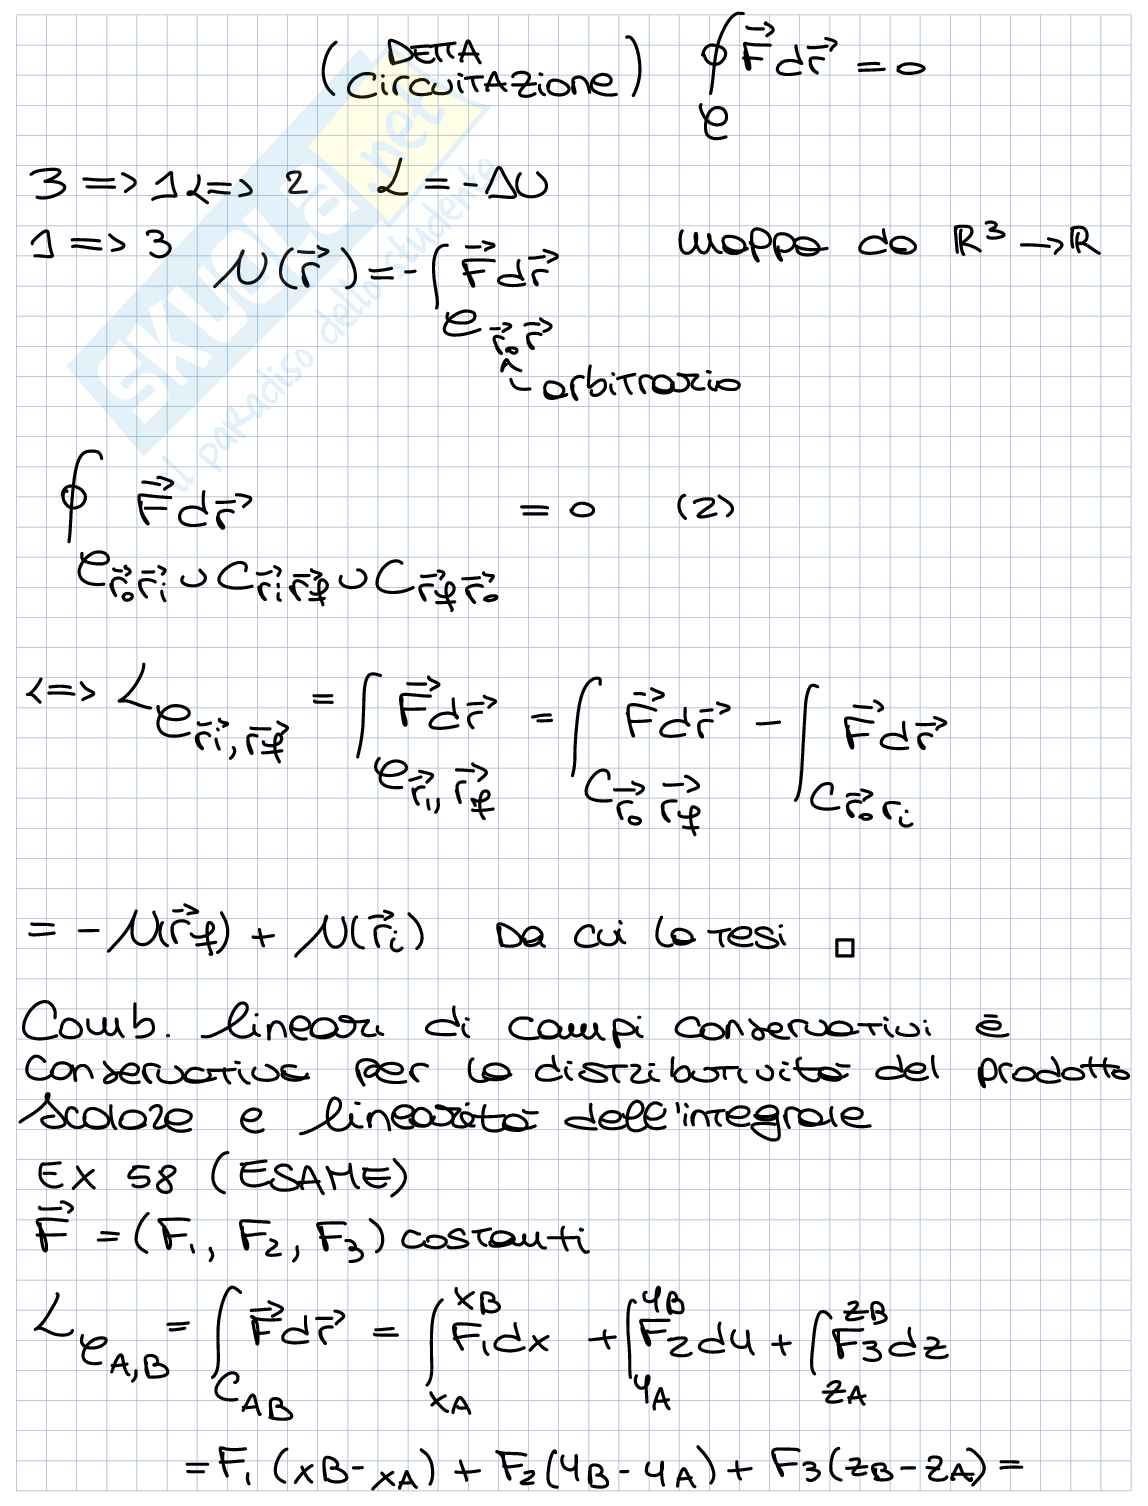 (DETTA CircuiTAZione) ∮_C F⃗ dr⃗ = 0
3 => 1 <=> 2 L = -ΔU
1 => 3 U(r⃗) = -∫_{C r⃗₀ r⃗} F⃗ dr⃗ mappa da ℝ³ → ℝ
arbitrario
∮_{C r⃗₀ r⃗i ∪ C r⃗i r⃗f ∪ C r⃗f r⃗₀} F⃗ dr⃗ = 0 (2)
<=> L_{C r⃗i, r⃗f} = ∫_{C r⃗i, r⃗f} F⃗ dr⃗ = ∫_{C r⃗₀ r⃗f} F⃗ dr⃗ - ∫_{C r⃗₀ ri} F⃗ dr⃗
= -U(r⃗f) + U(r⃗i) Da cui la tesi □
Comb. lineari di campi conservativi è
conservativa per la distributività del prodotto
scalare e linearità dell'integrale
EX 58 (ESAME)
F⃗ = (F₁, F₂, F₃) costanti
L_{C A,B} = ∫_{C AB} F⃗ dr⃗ = ∫_{xA}^{xB} F₁dx + ∫_{yA}^{yB} F₂dy + ∫_{zA}^{zB} F₃dz
= F₁(xB-xA) + F₂(yB-yA) + F₃(zB-zA) =
SKUOLA.net
il paradiso dello studente